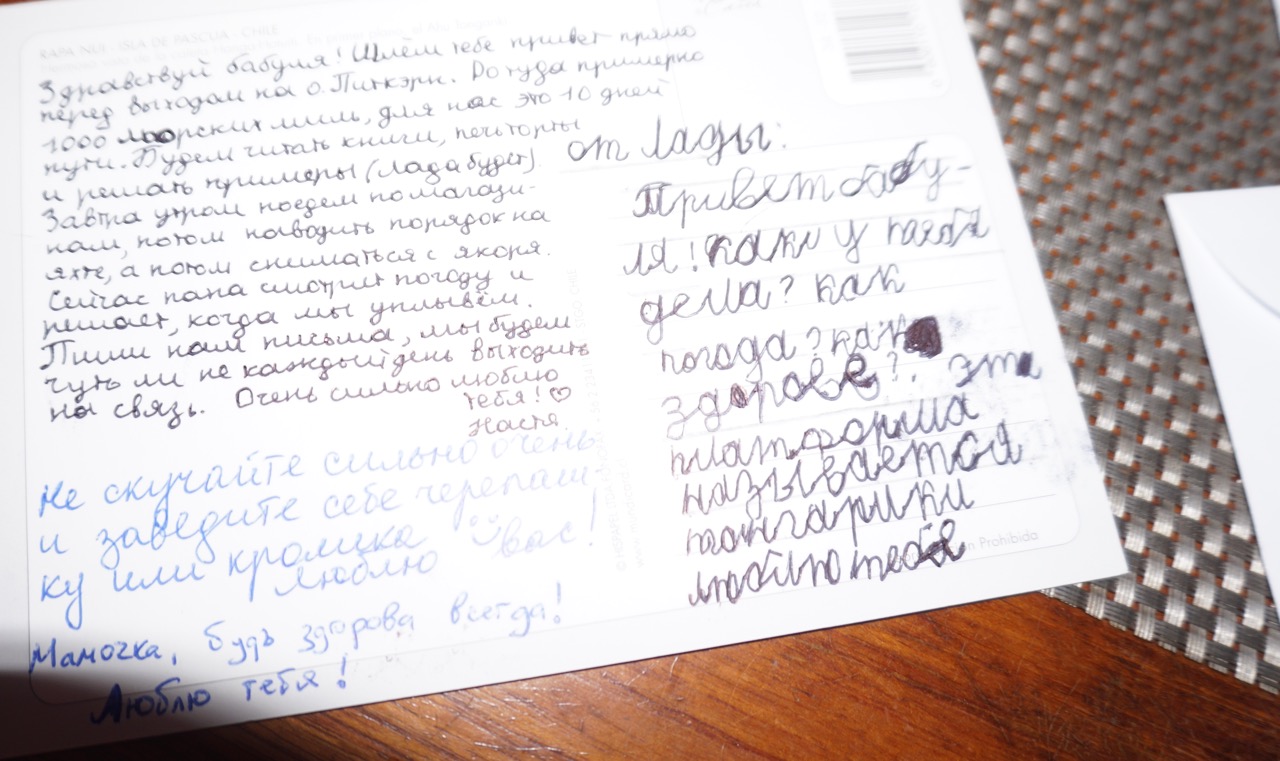 RAPA NUI · ISLA DE PASCUA · CHILE
Здравствуй бабуля! Шлём тебе привет прямо
перед выходом на о. Питкэрн. Дотуда примерно
1000 морских миль, для нас это 10 дней
пути. Будем читать книги, печь торты
и решать примеры (Лада будет).
Завтра утром поедем по магази-
нам, потом наводить порядок на
яхте, а потом сниматься с якоря.
Сейчас папа смотрит погоду и
решает, когда мы уплывём.
Пиши нам письма, мы будем
чуть ли не каждый день выходить
на связь. Очень сильно люблю
тебя! ♡
Настя.
Не скучайте сильно очень
и заведите себе черепаш
ку или кролика
Люблю вас!
Мамочка, будь здорова всегда!
Люблю тебя!
от Лады:
Привет бабу-
ля! как у тебя
дела? как
погода? как
здоровье?. эта
платформа
называется
тонгарики
люблю тебя
Prohibida